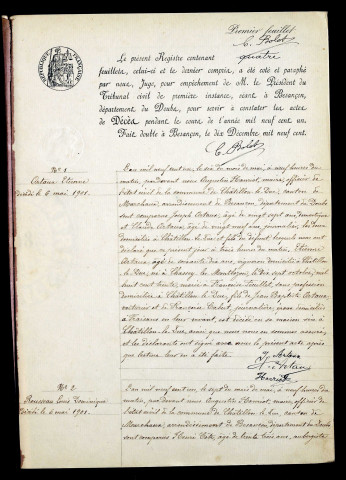 Premier feuillet
C. Bolot
Le présent Registre contenant quatre
feuillets, celui-ci et le dernier compris, a été coté et paraphé
par nous, Juge, pour empêchement de M. le Président du
Tribunal civil de première instance, séant à Besançon,
département du Doubs, pour servir à constater les actes
de Décès pendant le cours de l'année mil neuf cent un.
Fait double à Besançon, le dix Décembre mil neuf cent.
C. Bolot
No. 1
Etienne
décédé le 6 mai 1901.
L'an mil neuf cent un, le six du mois de mai, à neuf heures du
matin, par devant nous Augustin Henriot, maire, officier de
l'état civil de la commune de Châtillon le Duc, canton de
Marchaux, arrondissement de Besançon, département du Doubs
sont comparus Joseph
et Claude âgé de vingt neuf ans, journalier, les deux
domiciliés à Châtillon le Duc et fils du défunt lesquels nous ont
déclaré que ce jourd'hui, à trois heures du matin, Etienne
âgé de soixante dix ans, vigneron domicilié à Châtillon
le Duc, né à le dix sept octobre, mil
huit cent trente, marié à Françoise sans profession
domiciliée à Châtillon le Duc, fils de Jean Baptiste
et de Françoise journalière, tous domiciliés
à est décédé en sa maison sise à
Châtillon le Duc, ainsi que nous nous en sommes assuré,
et les déclarants ont signé avec nous le présent acte après
que lecture leur en a été faite.
Henriot
No. 2
Louis Dominique
décédé le 6 mai 1901.
L'an mil neuf cent un, le sept du mois de mai, à neuf heures du
matin, par devant nous Augustin Henriot, maire, officier de
l'état civil de la commune de Châtillon le Duc, canton de
Marchaux, arrondissement de Besançon, département du Doubs
sont comparus Henri âgé de trente trois ans, aubergiste